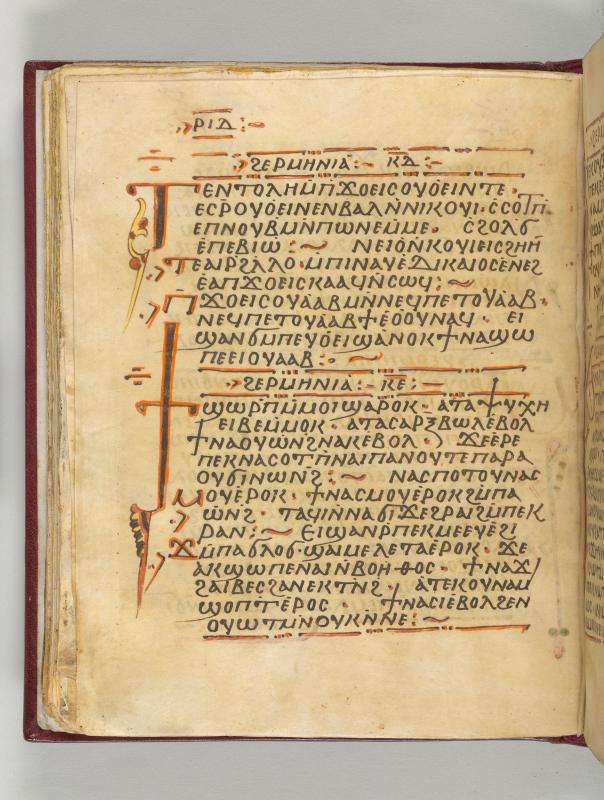 ⲣⲓⲇ:
ϩⲉⲣⲙⲏⲛⲓⲁ: ⲕⲇ:
ⲧⲉⲛⲧⲟⲗⲏⲙⲡϫⲟⲉⲓⲥⲟⲩⲟⲉⲓⲛⲧⲉ·
ⲉⲥⲣⲟⲩⲟⲉⲓⲛⲉⲛⲃⲁⲗⲛⲛⲓⲕⲟⲩⲓ· ⲥⲥⲟⲧⲡ
ⲉⲡⲛⲟⲩⲃⲙⲛⲡⲱⲛⲉⲙⲙⲉ· ⲥϩⲟⲗϭ
ⲉⲡⲉⲃⲓⲱ: ⲛⲉⲓⲟⲛⲕⲟⲩⲓⲉⲓⲥϩⲏⲏ
ⲧⲉⲁⲓⲣϩⲗⲗⲟ· ⲙⲡⲓⲛⲁⲩⲉⲇⲓⲕⲁⲓⲟⲥⲉⲛⲉϩ
ⲉⲁⲡϫⲟⲉⲓⲥⲕⲁⲁϥⲛⲥⲱϥ:
ⲡϫⲟⲉⲓⲥⲟⲩⲁⲁⲃⲙⲛⲛⲉϥⲡⲉⲧⲟⲩⲁⲁⲃ·
ⲛⲉϥⲡⲉⲧⲟⲩⲁⲁⲃϯⲉⲟⲟⲩⲛⲁϥ· ⲉⲓ
ϣⲁⲛϭⲙⲡⲉⲩⲟⲉⲓϣⲁⲛⲟⲕϯⲛⲁϣⲱ
ⲡⲉⲉⲓⲟⲩⲁⲁⲃ:
ϩⲉⲣⲙⲏⲛⲓⲁ: ⲕⲉ:
ϯϣⲱⲣⲡⲙⲙⲟⲓϣⲁⲣⲟⲕ· ⲁⲧⲁⲯⲩⲭⲏ
ⲉⲓⲃⲉⲙⲙⲟⲕ· ⲁⲧⲁⲥⲁⲣⲝⲃⲱⲗⲉⲃⲟⲗ
ϯⲛⲁⲟⲩⲱⲛϩⲛⲁⲕⲉⲃⲟⲗ· ϫⲉⲉⲣⲉ
ⲡⲉⲕⲛⲁⲥⲟⲧⲡⲛⲁⲓⲡⲁⲛⲟⲩⲧⲉⲡⲁⲣⲁ
ⲟⲩϭⲓⲛⲱⲛϩ: ⲛⲁⲥⲡⲟⲧⲟⲩⲛⲁⲥ
ⲙⲟⲩⲉⲣⲟⲕ· ϯⲛⲁⲥⲙⲟⲩⲉⲣⲟⲕϩⲙⲡⲁ
ⲱⲛϩ· ⲧⲁϥⲓⲛⲛⲁϭⲓϫⲉϩⲣⲁⲓϩⲙⲡⲉⲕ
ⲣⲁⲛ: ⲉⲓϣⲁⲛⲣⲡⲉⲕⲙⲉⲉⲩⲉϩⲓ
ϫⲙⲡⲁϭⲗⲟϭ· ϣⲁⲓⲙⲉⲗⲉⲧⲁⲉⲣⲟⲕ· ϫⲉ
ⲁⲕϣⲱⲡⲉⲛⲁⲓⲛⲃⲟⲏⲑⲟⲥ· ϯⲛⲁϫ
ϩⲁⲓⲃⲉⲥϩⲁⲛⲉⲕⲧⲛϩ· ⲁⲧⲉⲕⲟⲩⲛⲁⲙ
ϣⲟⲡⲧⲉⲣⲟⲥ· ϯⲛⲁⲥⲓⲉⲃⲟⲗϩⲉⲛ
ⲟⲩⲱⲧⲙⲛⲟⲩⲕⲛⲛⲉ: